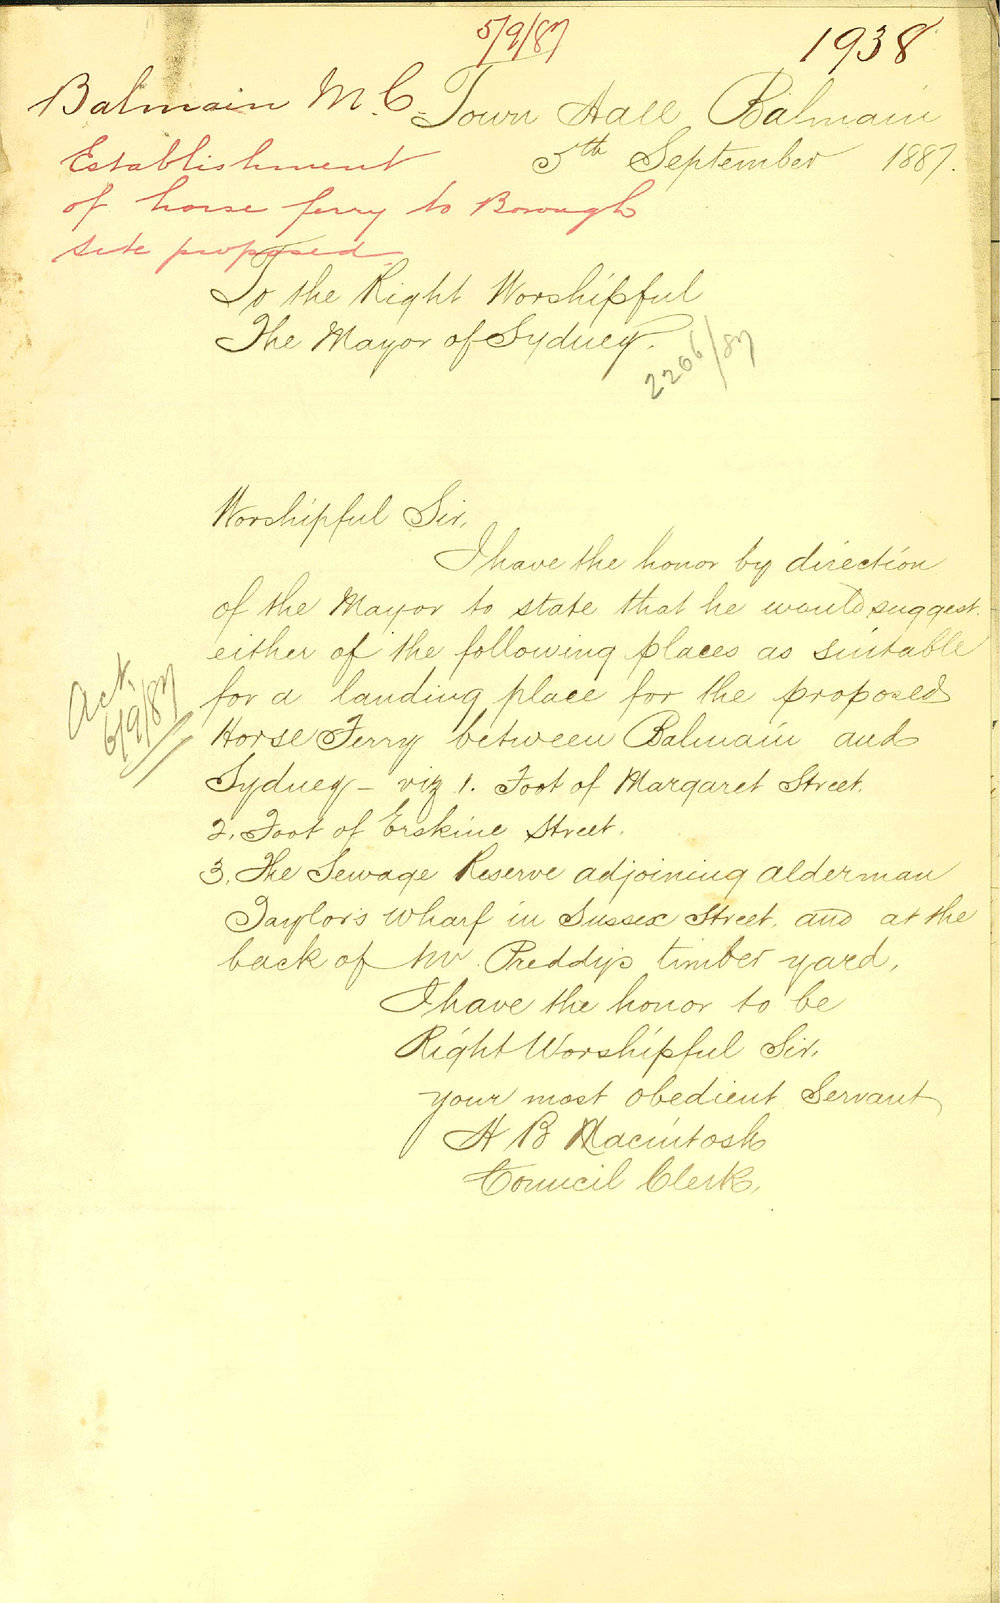 5/9/87
1938
Balmain M.C.
Town Hall Balmain
Establishment
of horse ferry to Borough
site proposed
5th September 1887.
To the Right Worshipful
The Mayor of Sydney.
2206/87
Worshipful Sir,
I have the honor by direction
of the Mayor to state that he would suggest
either of the following places as suintable
for a landing place for the proposed
Horse Ferry between Balmain and
Sydney – viz 1. Foot of Margaret Street.
2. Foot of Erskine Street.
3. The Sewage Reserve adjoining alderman
Taylor's wharf in Sussex Street, and at the
back of Mr Preddy's timber yard.
Act.
6/9/87
I have the honor to be
Right Worshipful Sir,
your most obedient Servant
H B Macintosh
Council Clerk.